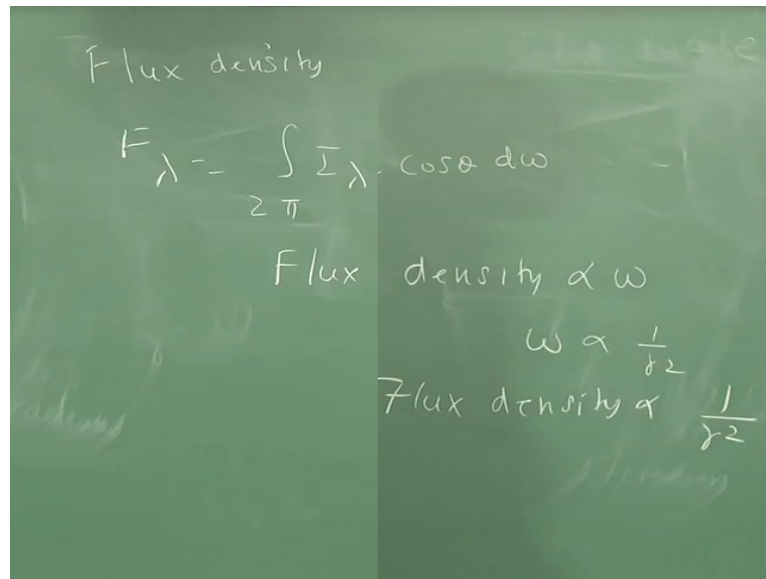 Flux density
F_λ = ∫_{2π} I_λ · cosθ dω
Flux density ∝ ω
ω ∝ 1/r²
Flux density ∝ 1/r²